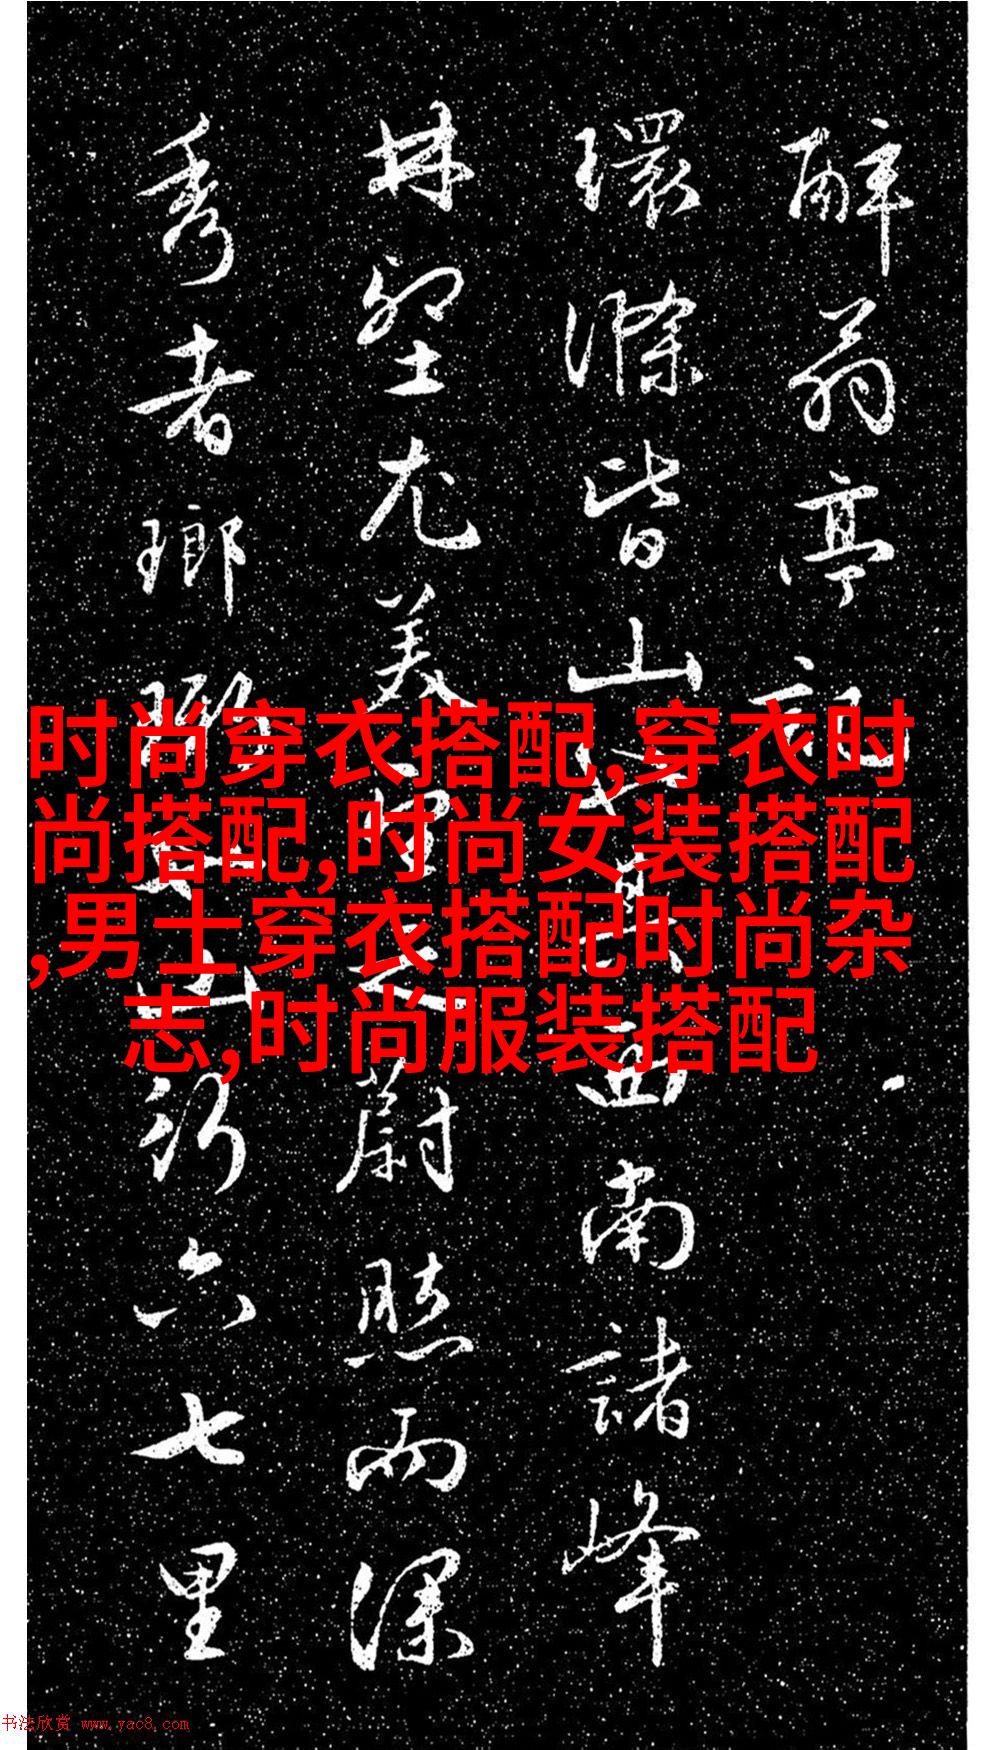 醉翁亭記
環滁皆山也其西南諸峰
林壑尤美望之蔚然而深
秀者瑯琊也山行六七里
时尚穿衣搭配,穿衣时
尚搭配,时尚女装搭配
,男士穿衣搭配时尚杂
志,时尚服装搭配
书法欣赏 www.yac8.com